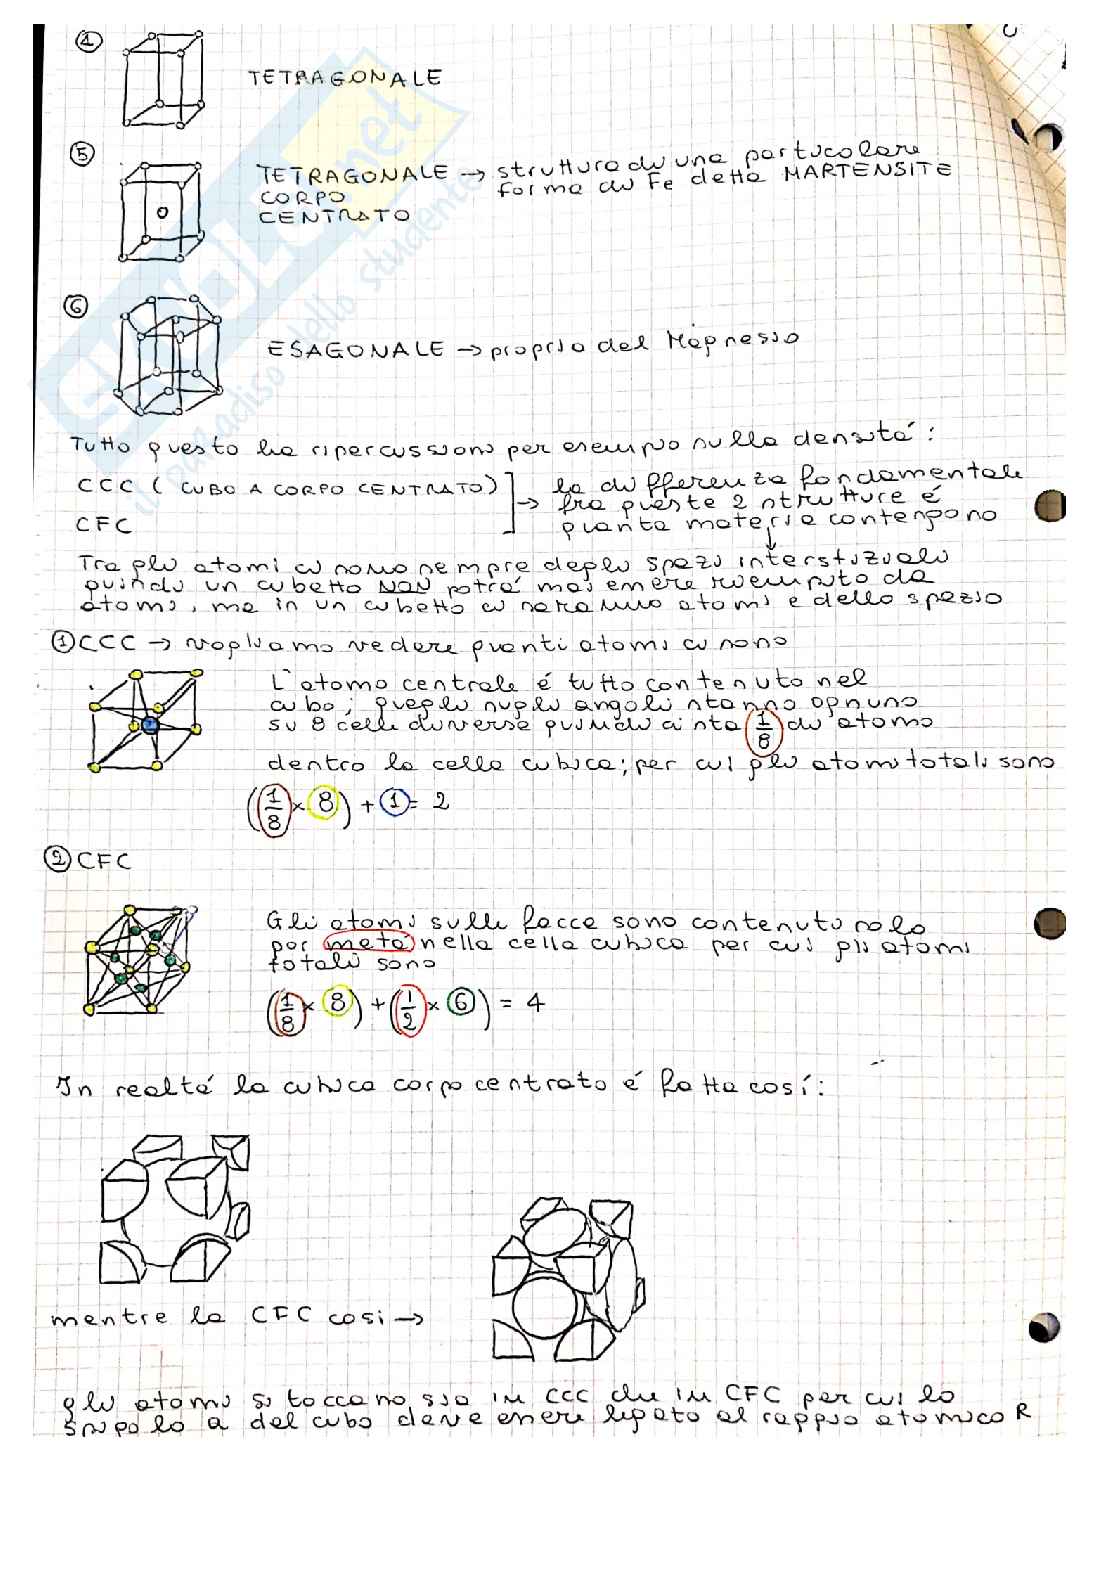 4
TETRAGONALE
5
TETRAGONALE → struttura di una particolare
CORPO forma di Fe detta MARTENSITE
CENTRATO
6
ESAGONALE → proprio del Magnesio
Tutto questo ha ripercussioni per esempio sulla densitá:
CCC ( CUBO A CORPO CENTRATO) la differenza fondamentale
→ fra queste 2 strutture é
CFC quanta materia contengono
Tra gli atomi ci sono sempre degli spazi interstiziali
quindi un cubetto NON potrá mai essere riempito da
atomi, ma in un cubetto ci saranno atomi e dello spazio
1 CCC → vogliamo vedere quanti atomi ci sono
L'atomo centrale é tutto contenuto nel
cubo; quegli sugli angoli stanno ognuno
su 8 celle diverse quindi ci sta 1/8 di atomo
dentro la cella cubica; per cui gli atomi totali sono
(1/8 × 8) + 1 = 2
2 CFC
Gli atomi sulle facce sono contenuti solo
per metá nella cella cubica per cui gli atomi
totali sono
(1/8 × 8) + (1/2 × 6) = 4
In realtá la cubica corpo centrato é fatta cosí:
mentre la CFC cosi →
gli atomi si toccano sia in CCC che in CFC per cui lo
spigolo a del cubo deve essere legato al raggio atomico R